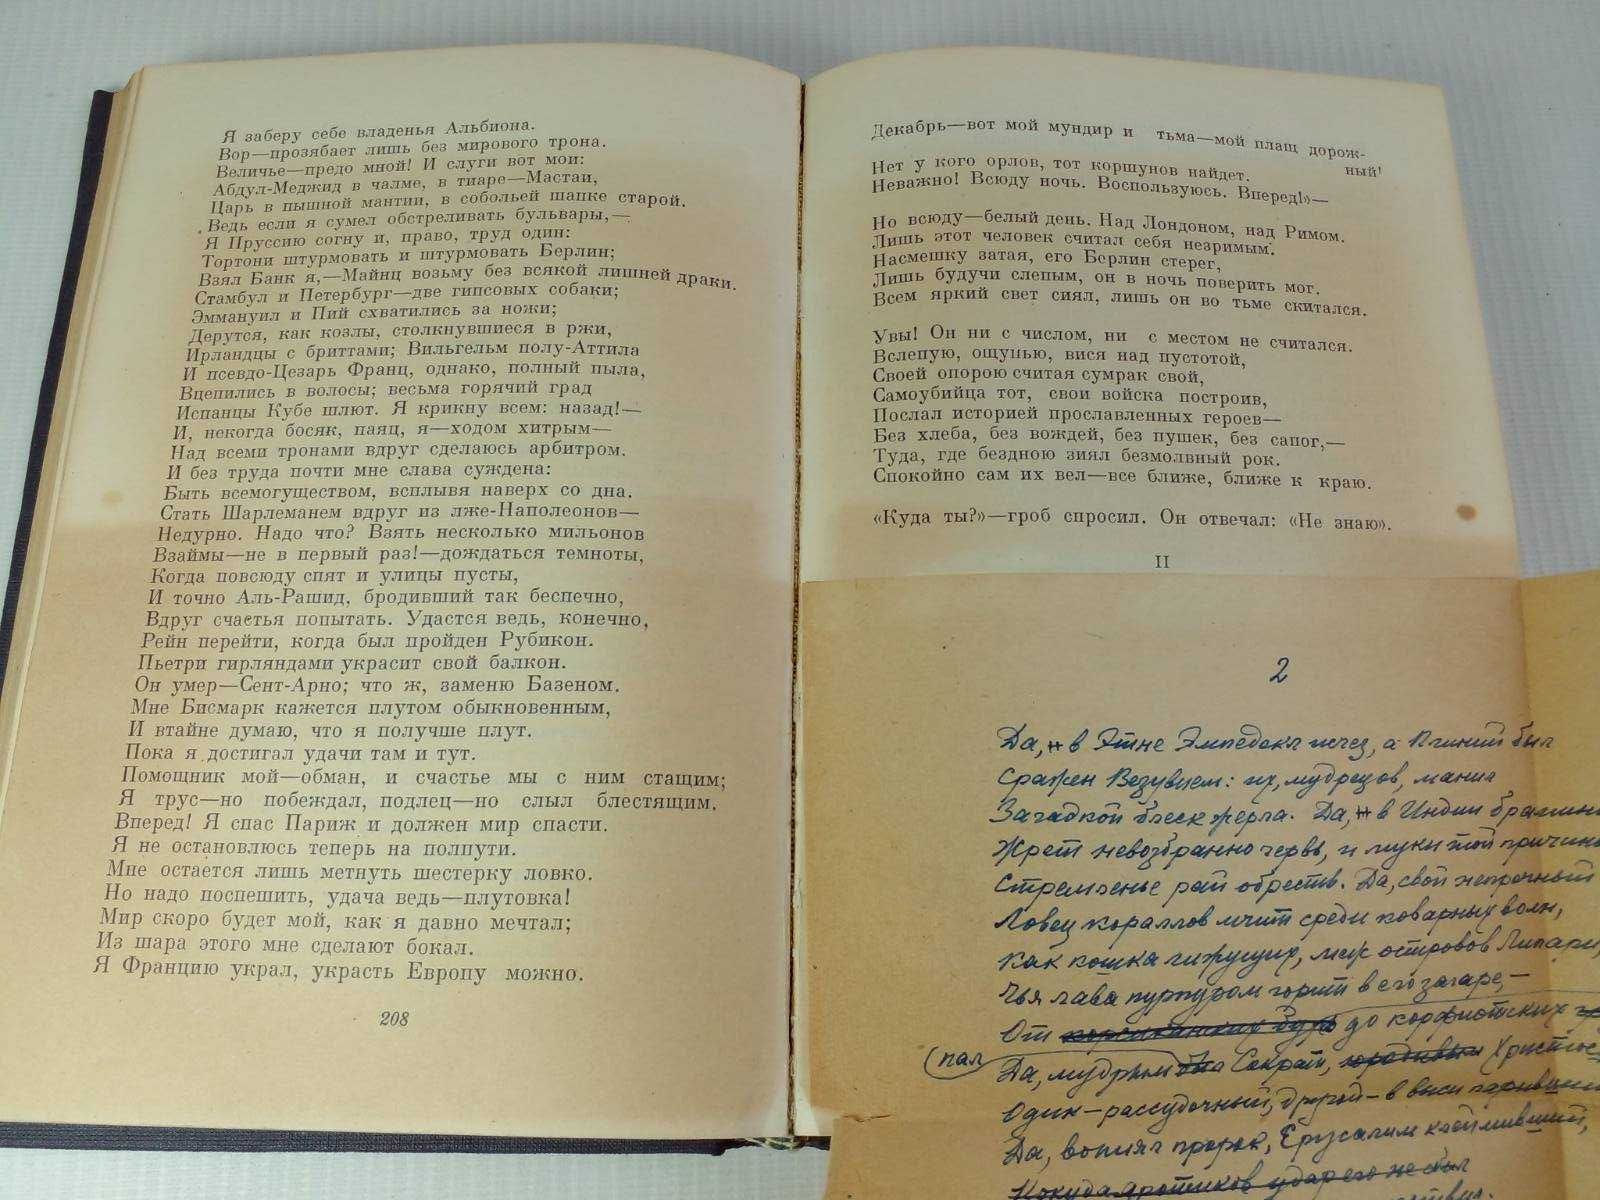 Я заберу себе владенья Альбиона.
Вор—прозябает лишь без мирового трона.
Величье—предо мной! И слуги вот мои:
Абдул-Меджид в чалме, в тиаре—Мастаи,
Царь в пышной мантии, в собольей шапке старой.
Ведь если я сумел обстреливать бульвары,—
Я Пруссию согну и, право, труд один:
Тортони штурмовать и штурмовать Берлин;
Взял Банк я,—Майнц возьму без всякой лишней драки.
Стамбул и Петербург—две гипсовых собаки;
Эммануил и Пий схватились за ножи;
Дерутся, как козлы, столкнувшиеся в ржи,
Ирландцы с бриттами; Вильгельм полу-Аттила
И псевдо-Цезарь Франц, однако, полный пыла,
Вцепились в волосы; весьма горячий град
Испанцы Кубе шлют. Я крикну всем: назад!—
И, некогда босяк, паяц, я—ходом хитрым—
Над всеми тронами вдруг сделаюсь арбитром.
И без труда почти мне слава суждена:
Быть всемогуществом, всплывя наверх со дна.
Стать Шарлеманем вдруг из лже-Наполеонов—
Недурно. Надо что? Взять несколько мильонов
Взаймы—не в первый раз!—дождаться темноты,
Когда повсюду спят и улицы пусты,
И точно Аль-Рашид, бродивший так беспечно,
Вдруг счастья попытать. Удастся ведь, конечно,
Рейн перейти, когда был пройден Рубикон.
Пьетри гирляндами украсит свой балкон.
Он умер—Сент-Арно; что ж, заменю Базеном.
Мне Бисмарк кажется плутом обыкновенным,
И втайне думаю, что я получше плут.
Пока я достигал удачи там и тут.
Помощник мой—обман, и счастье мы с ним стащим;
Я трус—но побеждал, подлец—но слыл блестящим.
Вперед! Я спас Париж и должен мир спасти.
Я не остановлюсь теперь на полпути.
Мне остается лишь метнуть шестерку ловко.
Но надо поспешить, удача ведь—плутовка!
Мир скоро будет мой, как я давно мечтал;
Из шара этого мне сделают бокал.
Я Францию украл, украсть Европу можно.
208
Декабрь—вот мой мундир и тьма—мой плащ дорож-
ный!
Нет у кого орлов, тот коршунов найдет.
Неважно! Всюду ночь. Воспользуюсь. Вперед!»—
Но всюду—белый день. Над Лондоном, над Римом.
Лишь этот человек считал себя незримым.
Насмешку затая, его Берлин стерег,
Лишь будучи слепым, он в ночь поверить мог.
Всем яркий свет сиял, лишь он во тьме скитался.
Увы! Он ни с числом, ни с местом не считался.
Вслепую, ощупью, вися над пустотой,
Своей опорою считая сумрак свой,
Самоубийца тот, свои войска построив,
Послал историей прославленных героев—
Без хлеба, без вождей, без пушек, без сапог,—
Туда, где бездною зиял безмолвный рок.
Спокойно сам их вел—все ближе, ближе к краю.
«Куда ты?»—гроб спросил. Он отвечал: «Не знаю».
II
2
Да, в Этне Эмпедокл исчез, а Плиний был
Сражен Везувием: их, мудрецов, манил
Загадкой блеск жерла. Да, в Индии брамина
Жрет невозбранно червь, и муки той причина
Стремленье рай обресть. Да, свой непрочный
Ловец кораллов мчит среди коварных волн,
Как кошка лижущих, мыс островов Липари,
Чья лава пурпуром горит в его загаре,—
От корсиканских бухт до корфиотских
(пал
Да, мудрым Сократ, юродивым Христос
Один—рассудочный, другой—в выси паривший
Да, вопиял пророк, Ерусалим клеймивший,